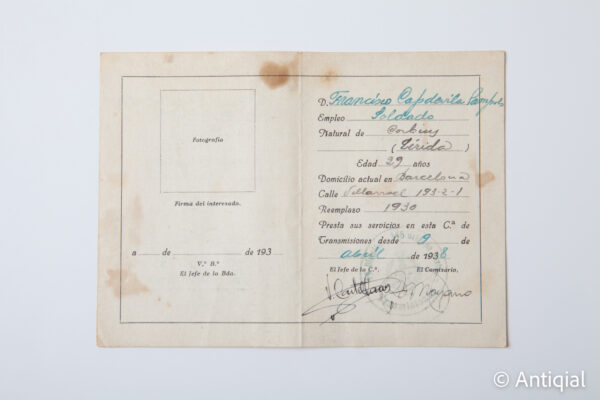 Fotografía
Firma del interesado.
a de de 193
V.º B.º
El Jefe de la Bda.
D. Francisco Capdevila
Empleo Soldado
Natural de
(Lérida)
Edad 29 años
Domicilio actual en Barcelona
Calle Villarroel 193-2-1
Reemplazo 1930
Presta sus servicios en esta C.ª de
Transmisiones desde 9 de
abril de 1938
El Jefe de la C.ª El Comisario.
Moyano
© Antiqial